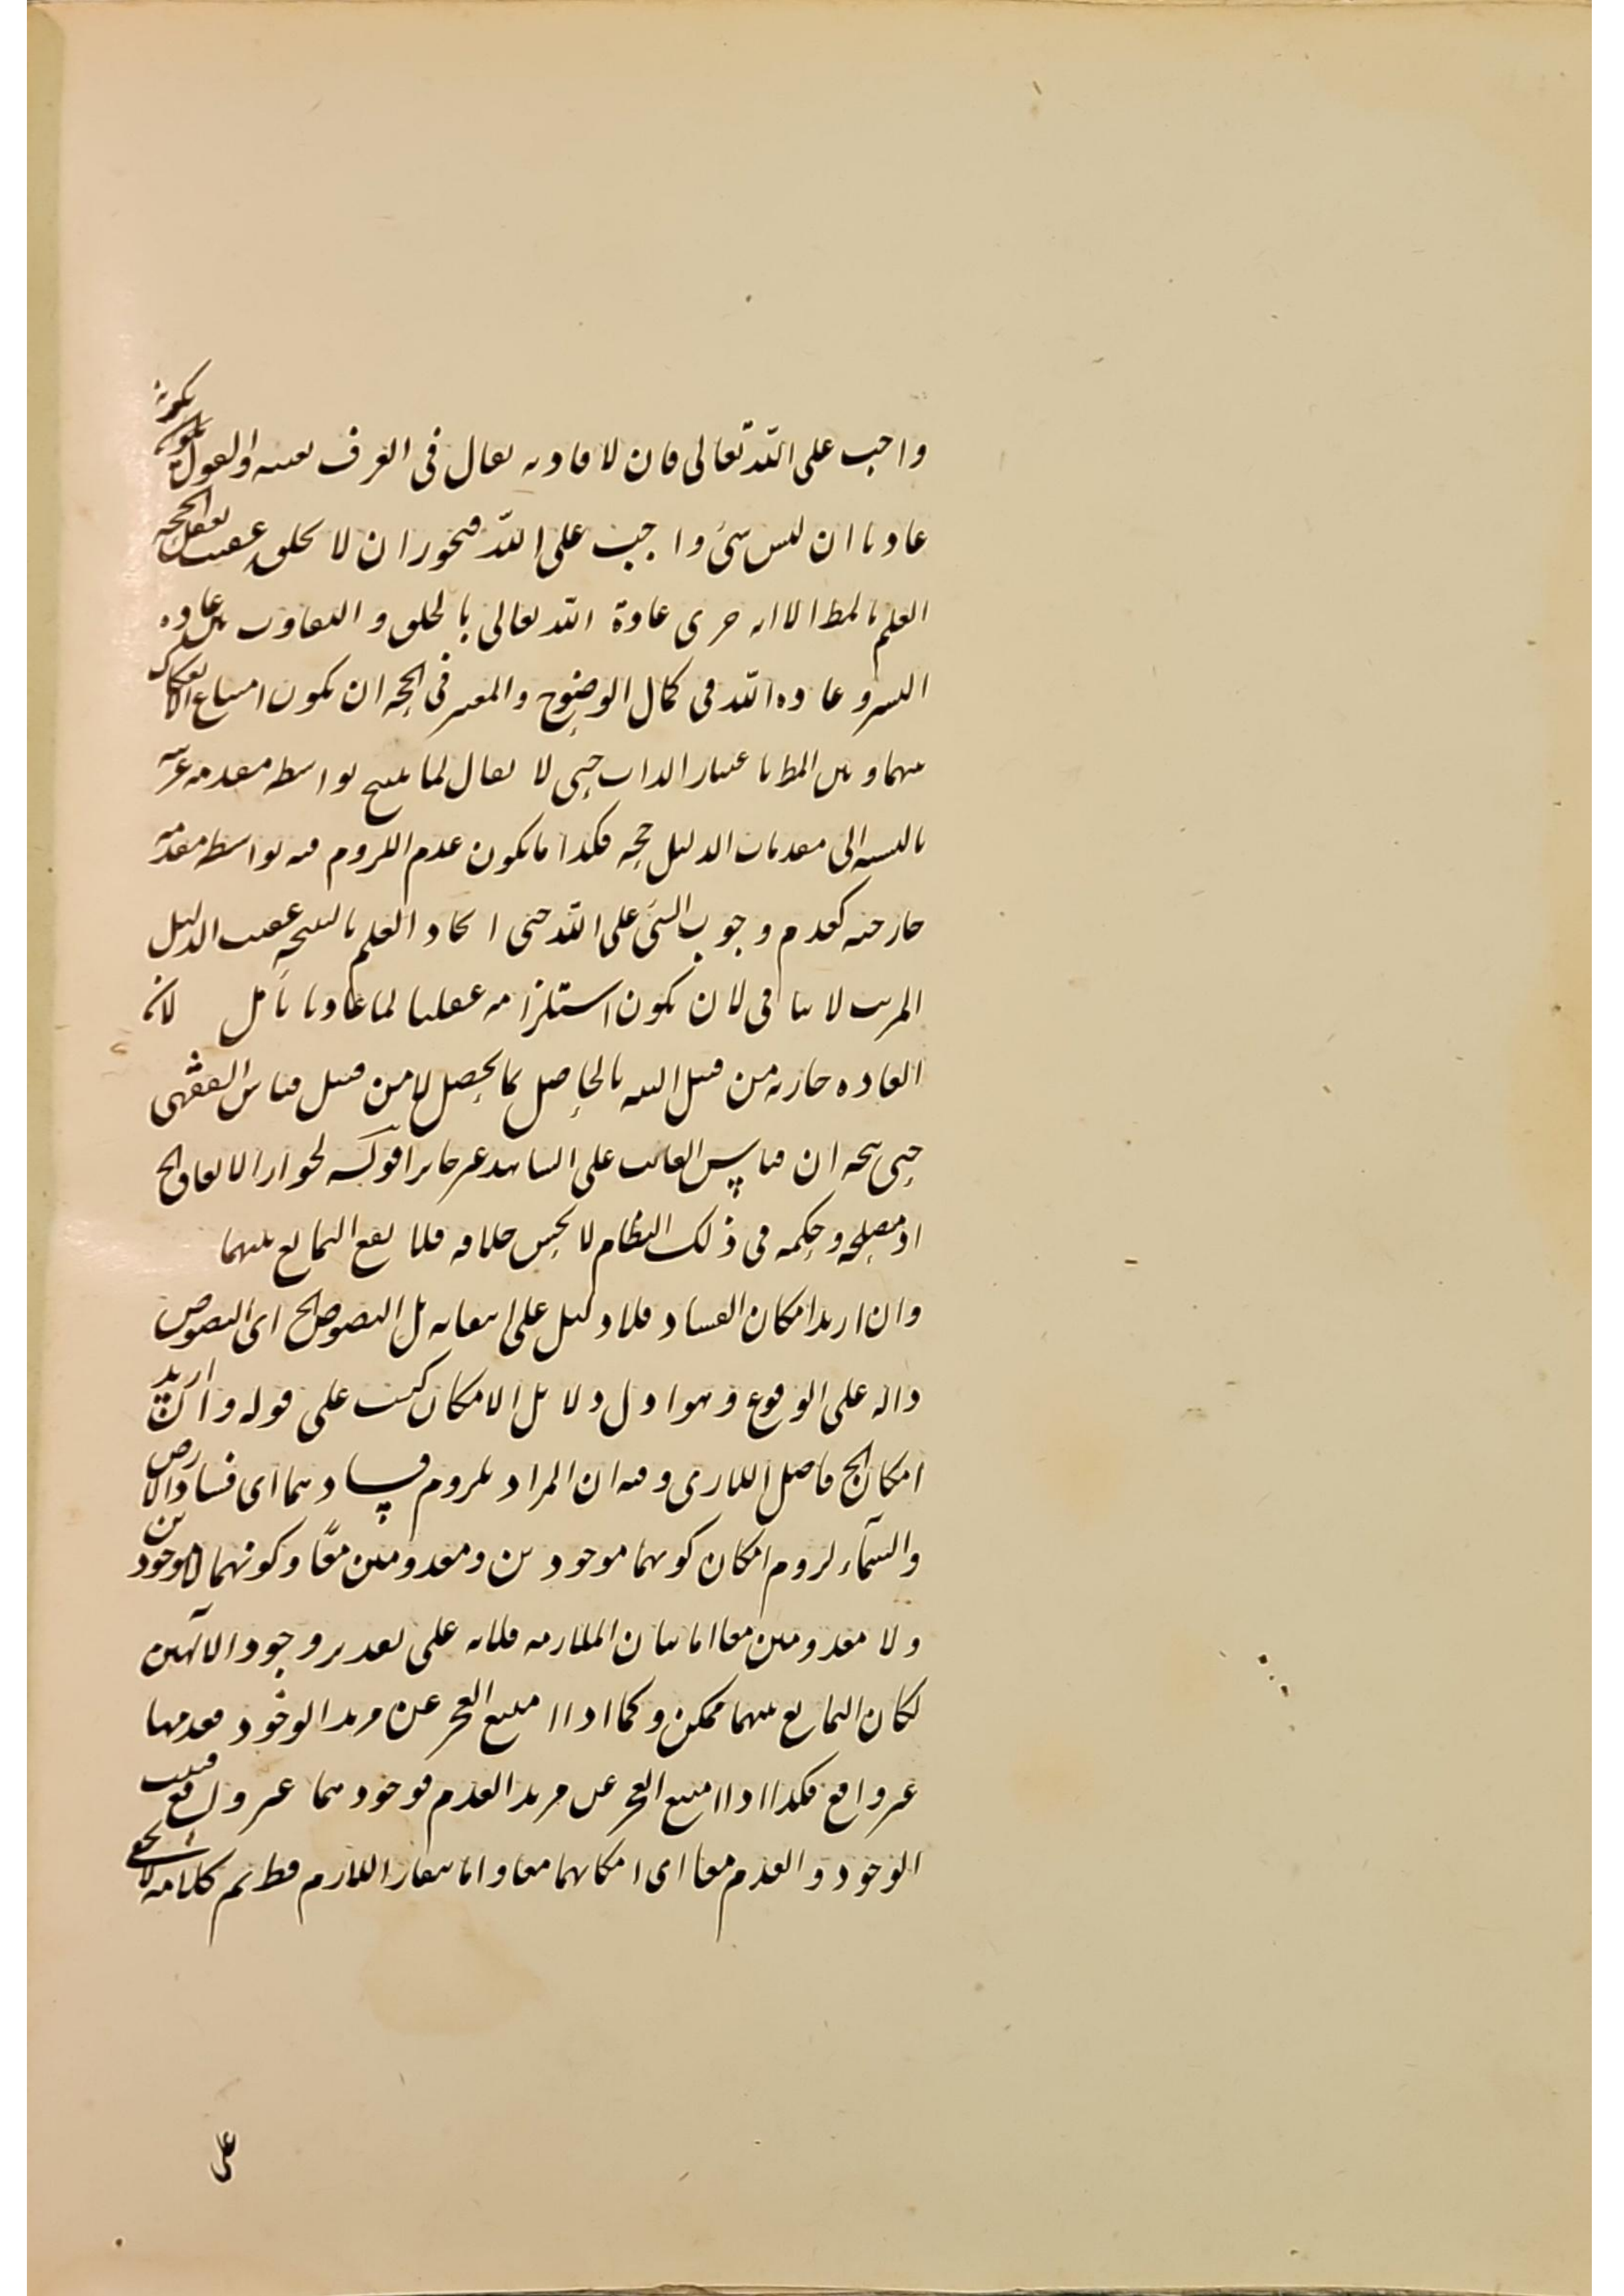 واجب على الله تعالى فان لا فادته يقال فى العرف بعينه والقول بكونه
عاديا ان ليس شئ واجب على الله فيجوز ان لا يخلق عقيب تعقل الحجة
العلم بالمط الا انه جرى عادة الله تعالى بالخلق والتفاوت بين عادة
البشر وعادة الله فى كمال الوضوح والمعتبر فى الحجة ان يكون امتناع الانفكاك
بينها وبين المط باعتبار الذات حتى لا يقال لما ينتج بواسطة مقدمة غريبة
بالنسبة الى مقدمات الدليل حجة فكذا ما يكون عدم اللزوم فيه بواسطة مقدمة
خارجية كعدم وجوب الشئ على الله حتى ايجاد العلم بالنتيجة عقيب الدليل
المرتب لا ينافى لان يكون استلزامه عقليا لما عاديا تأمل لان
العادة جارية من قبل الله بالحاصل كما يحصل لا من قبل قياس الفقهى
حتى يتجه ان قياس الغائب على الشاهد غير جائز قوله لجواز الاتفاق الخ
اذ مصلحة وحكمة فى ذلك النظام لا يحسن خلافه فلا يقع التمانع بينهما
وان اريد امكان الفساد فلا دليل على انتفائه بل النصوص الخ اى النصوص
دالة على الوقوع وهو ادل دلائل الامكان كتب على قوله وان اريد
امكان الخ فاضل اللارى وفيه ان المراد بلزوم فسادهما اى فساد الارض
والسمآء لزوم امكان كونهما موجودين ومعدومين معًا وكونهما لا موجودين
ولا معدومين معا اما بيان الملازمة فلانه على تقدير وجود الآلهين
لكان التمانع بينهما ممكن وكما اذا امتنع العجز عن مريد الوجود فعدمها
غير واقع فكذا اذا امتنع العجز عن مريد العدم فوجودهما غير واقع فيثبت
الوجود والعدم معا اى امكانهما معا واما بيان اللازم فظ تم كلامه لا يخفى
على